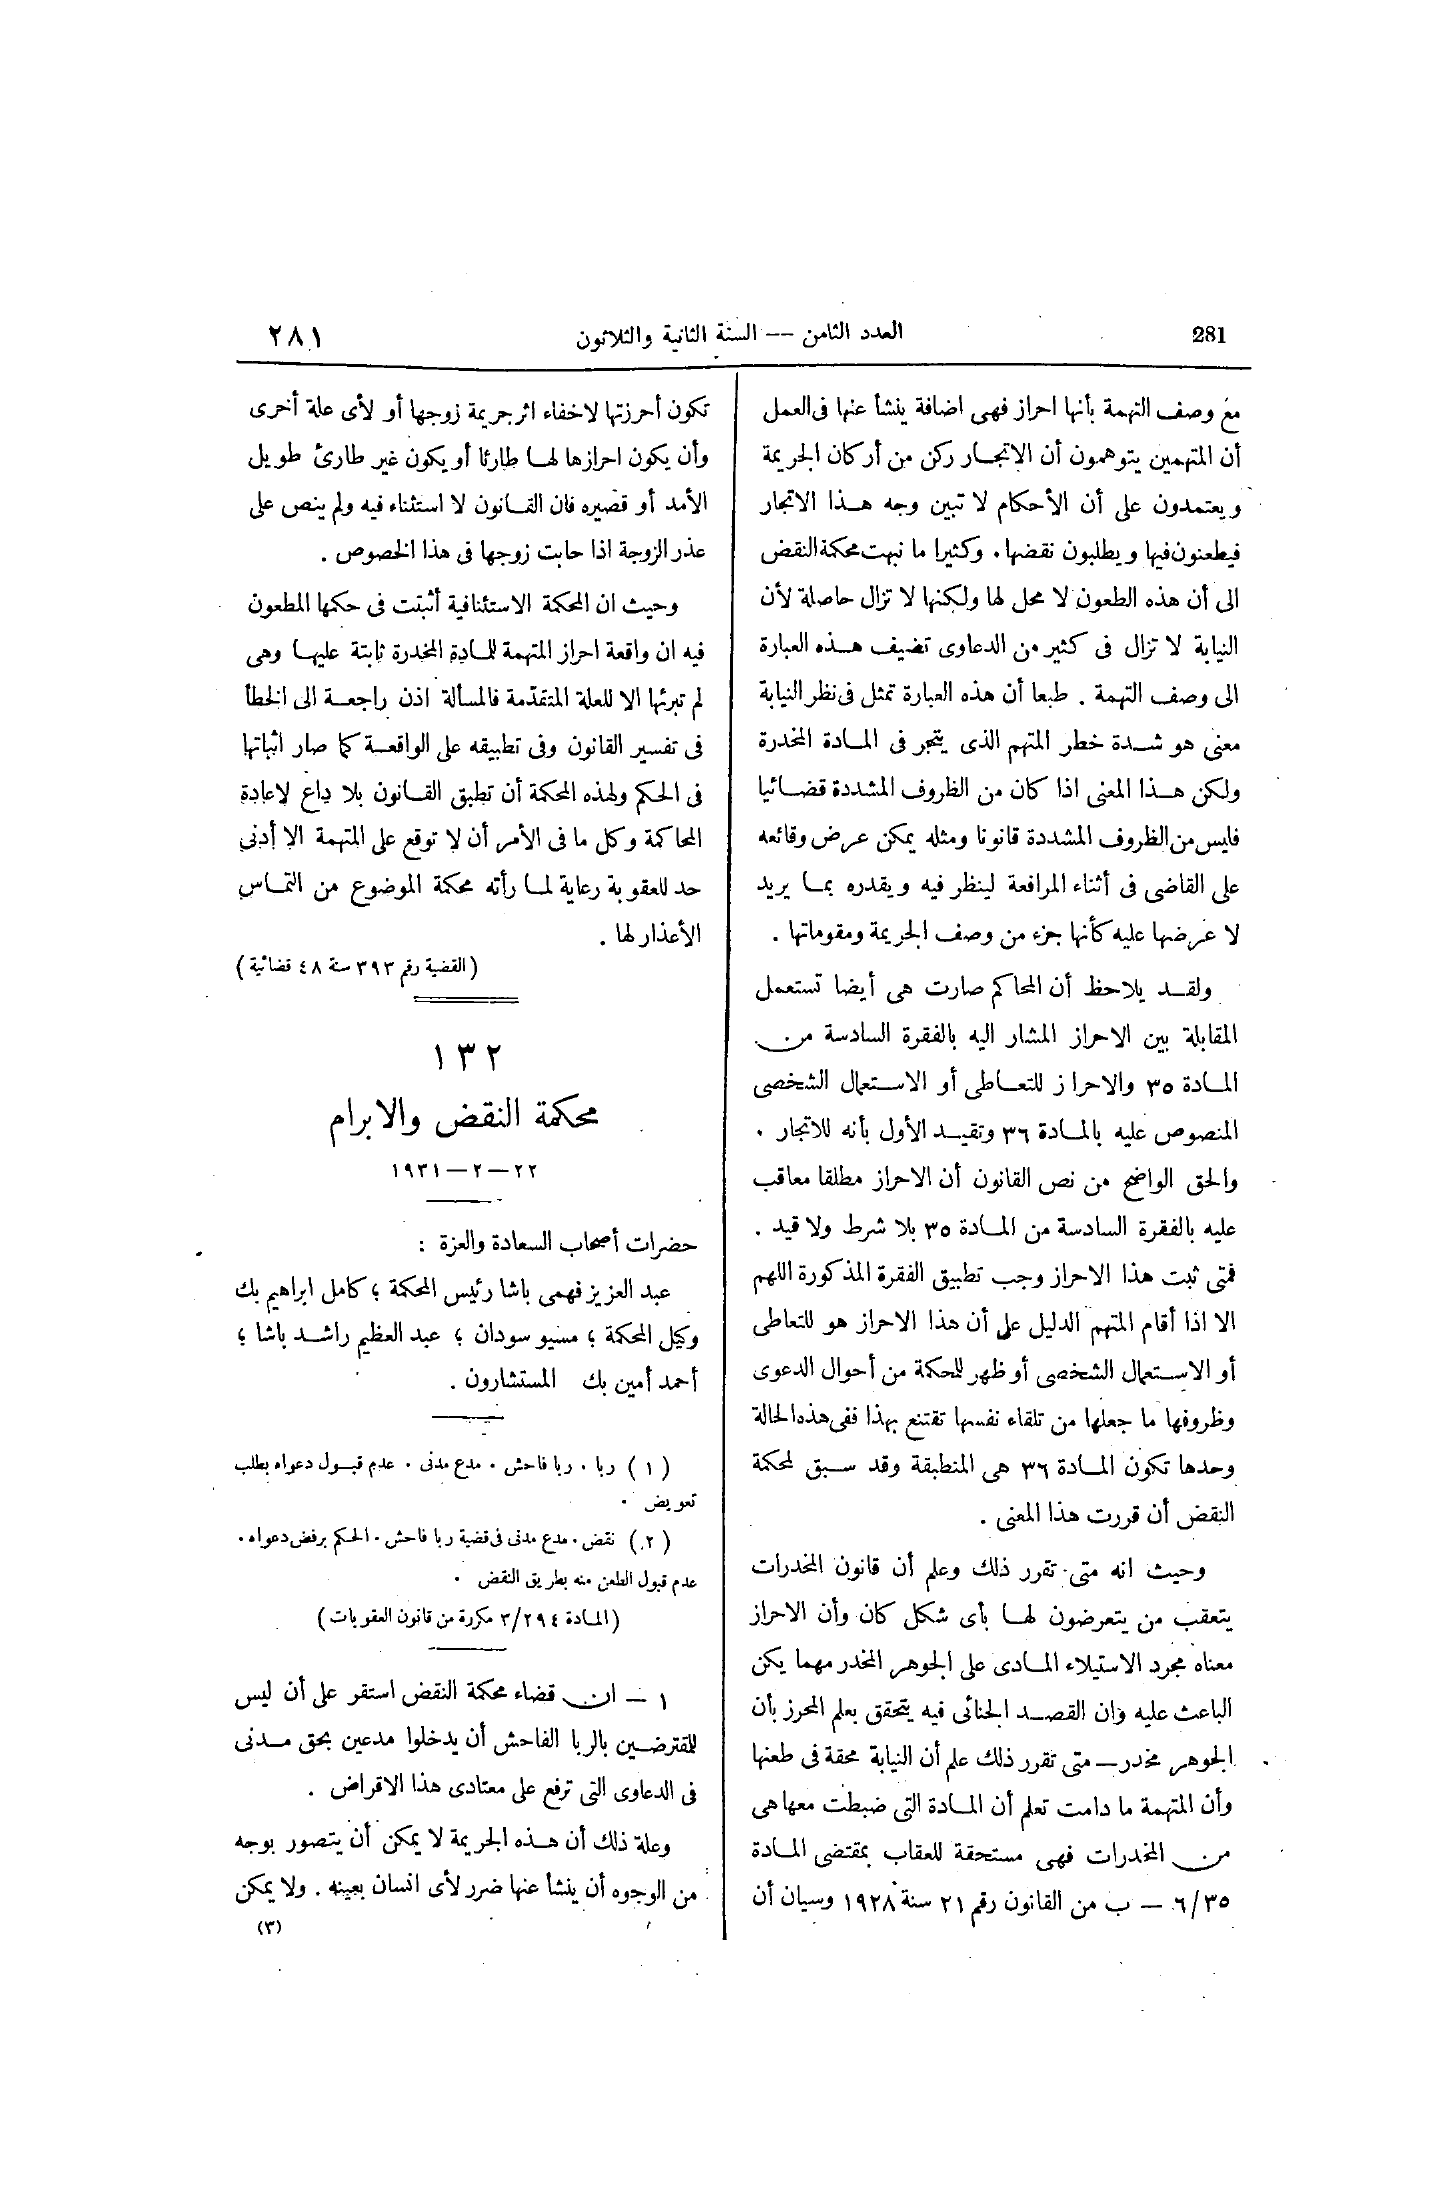 281
العدد الثامن — السنة الثانية والثلاثون
٢٨١
مع وصف التهمة بأنها احراز فهى اضافة ينشأ عنها فى العمل
أن المتهمين يتوهمون أن الاتجار ركن من أركان الجريمة
ويعتمدون على أن الأحكام لا تبين وجه هذا الاتجار
فيطعنون فيها ويطلبون نقضها. وكثيرا ما نبهت محكمة النقض
الى أن هذه الطعون لا محل لها ولكنها لا تزال حاصلة لأن
النيابة لا تزال فى كثير من الدعاوى تضيف هذه العبارة
الى وصف التهمة . طبعا أن هذه العبارة تمثل فى نظر النيابة
معنى هو شدة خطر المتهم الذى يتجر فى المادة المخدرة
ولكن هذا المعنى اذا كان من الظروف المشددة قضائيا
فليس من الظروف المشددة قانونا ومثله يمكن عرض وقائعه
على القاضى فى أثناء المرافعة لينظر فيه ويقدره بما يريد
لا عرضها عليه كأنها جزء من وصف الجريمة ومقوماتها .
ولقد يلاحظ أن المحاكم صارت هى أيضا تستعمل
المقابلة بين الاحراز المشار اليه بالفقرة السادسة من
المادة ٣٥ والاحراز للتعاطى أو الاستعمال الشخصى
المنصوص عليه بالمادة ٣٦ وتقيد الأول بأنه للاتجار .
والحق الواضح من نص القانون أن الاحراز مطلقا معاقب
عليه بالفقرة السادسة من المادة ٣٥ بلا شرط ولا قيد .
فمتى ثبت هذا الاحراز وجب تطبيق الفقرة المذكورة اللهم
الا اذا أقام المتهم الدليل على أن هذا الاحراز هو للتعاطى
أو الاستعمال الشخصى أو ظهر للمحكمة من أحوال الدعوى
وظروفها ما جعلها من تلقاء نفسها تقتنع بهذا ففى هذه الحالة
وحدها تكون المادة ٣٦ هى المنطبقة وقد سبق لمحكمة
النقض أن قررت هذا المعنى .
وحيث انه متى تقرر ذلك وعلم أن قانون المخدرات
يتعقب من يتعرضون لها بأى شكل كان وأن الاحراز
معناه مجرد الاستيلاء المادى على الجوهر المخدر مهما يكن
الباعث عليه وان القصد الجنائى فيه يتحقق بعلم المحرز بأن
الجوهر مخدر — متى تقرر ذلك علم أن النيابة محقة فى طعنها
وأن المتهمة ما دامت تعلم أن المادة التى ضبطت معها هى
من المخدرات فهى مستحقة للعقاب بمقتضى المادة
٦/٣٥ — ب من القانون رقم ٢١ سنة ١٩٢٨ وسيان أن
تكون أحرزتها لاخفاء اثر جريمة زوجها أو لأى علة أخرى
وأن يكون احرازها لها طارئا أو يكون غير طارئ طويل
الأمد أو قصيره فان القانون لا استثناء فيه ولم ينص على
عذر الزوجة اذا حابت زوجها فى هذا الخصوص .
وحيث ان المحكمة الاستئنافية أثبتت فى حكمها المطعون
فيه ان واقعة احراز المتهمة للمادة المخدرة ثابتة عليها وهى
لم تبرئها الا للعلة المتقدّمة فالمسألة اذن راجعة الى الخطأ
فى تفسير القانون وفى تطبيقه على الواقعة كما صار اثباتها
فى الحكم ولهذه المحكمة أن تطبق القانون بلا داع لاعادة
المحاكمة وكل ما فى الأمر أن لا توقع على المتهمة الا أدنى
حد للعقوبة رعاية لما رأته محكمة الموضوع من التماس
الأعذار لها .
( القضية رقم ٣٩٣ سنة ٤٨ قضائية )
١٣٢
محكمة النقض والابرام
٢٢—٢—١٩٣١
حضرات أصحاب السعادة والعزة :
عبد العزيز فهمى باشا رئيس المحكمة ؛ كامل ابراهيم بك
وكيل المحكمة ؛ مسيو سودان ؛ عبد العظيم راشد باشا ؛
أحمد أمين بك المستشارون .
( ١ ) ربا . ربا فاحش . مدع مدنى . عدم قبول دعواه بطلب
تعويض .
( ٢ ) نقض . مدع مدنى فى قضية ربا فاحش . الحكم برفض دعواه .
عدم قبول الطعن منه بطريق النقض .
( المادة ٣/٢٩٤ مكررة من قانون العقوبات )
١ — ان قضاء محكمة النقض استقر على أن ليس
للمقترضين بالربا الفاحش أن يدخلوا مدعين بحق مدنى
فى الدعاوى التى ترفع على معتادى هذا الاقراض .
وعلة ذلك أن هذه الجريمة لا يمكن أن يتصور بوجه
من الوجوه أن ينشأ عنها ضرر لأى انسان بعينه . ولا يمكن
(٣)